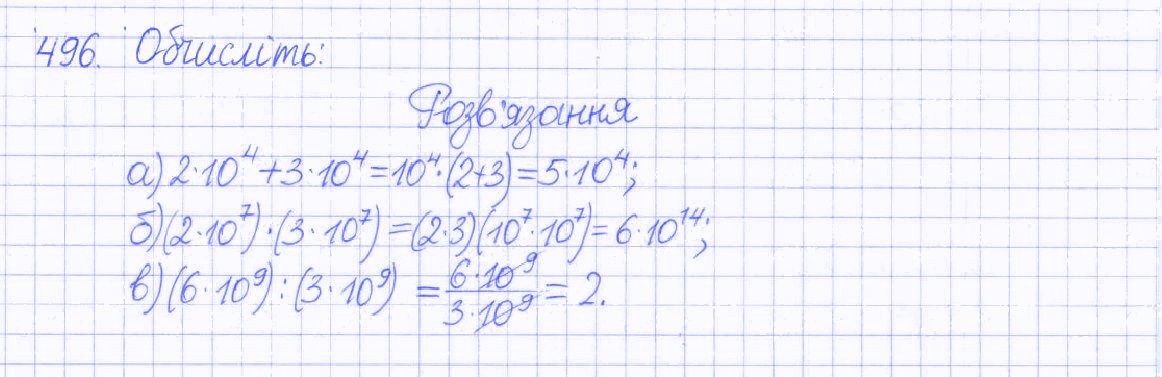 496. Обчисліть:
Розв'язання
а) 2·10⁴+3·10⁴=10⁴·(2+3)=5·10⁴;
б) (2·10⁷)·(3·10⁷)=(2·3)(10⁷·10⁷)=6·10¹⁴;
в) (6·10⁹):(3·10⁹) = 6·10⁹/3·10⁹ = 2.